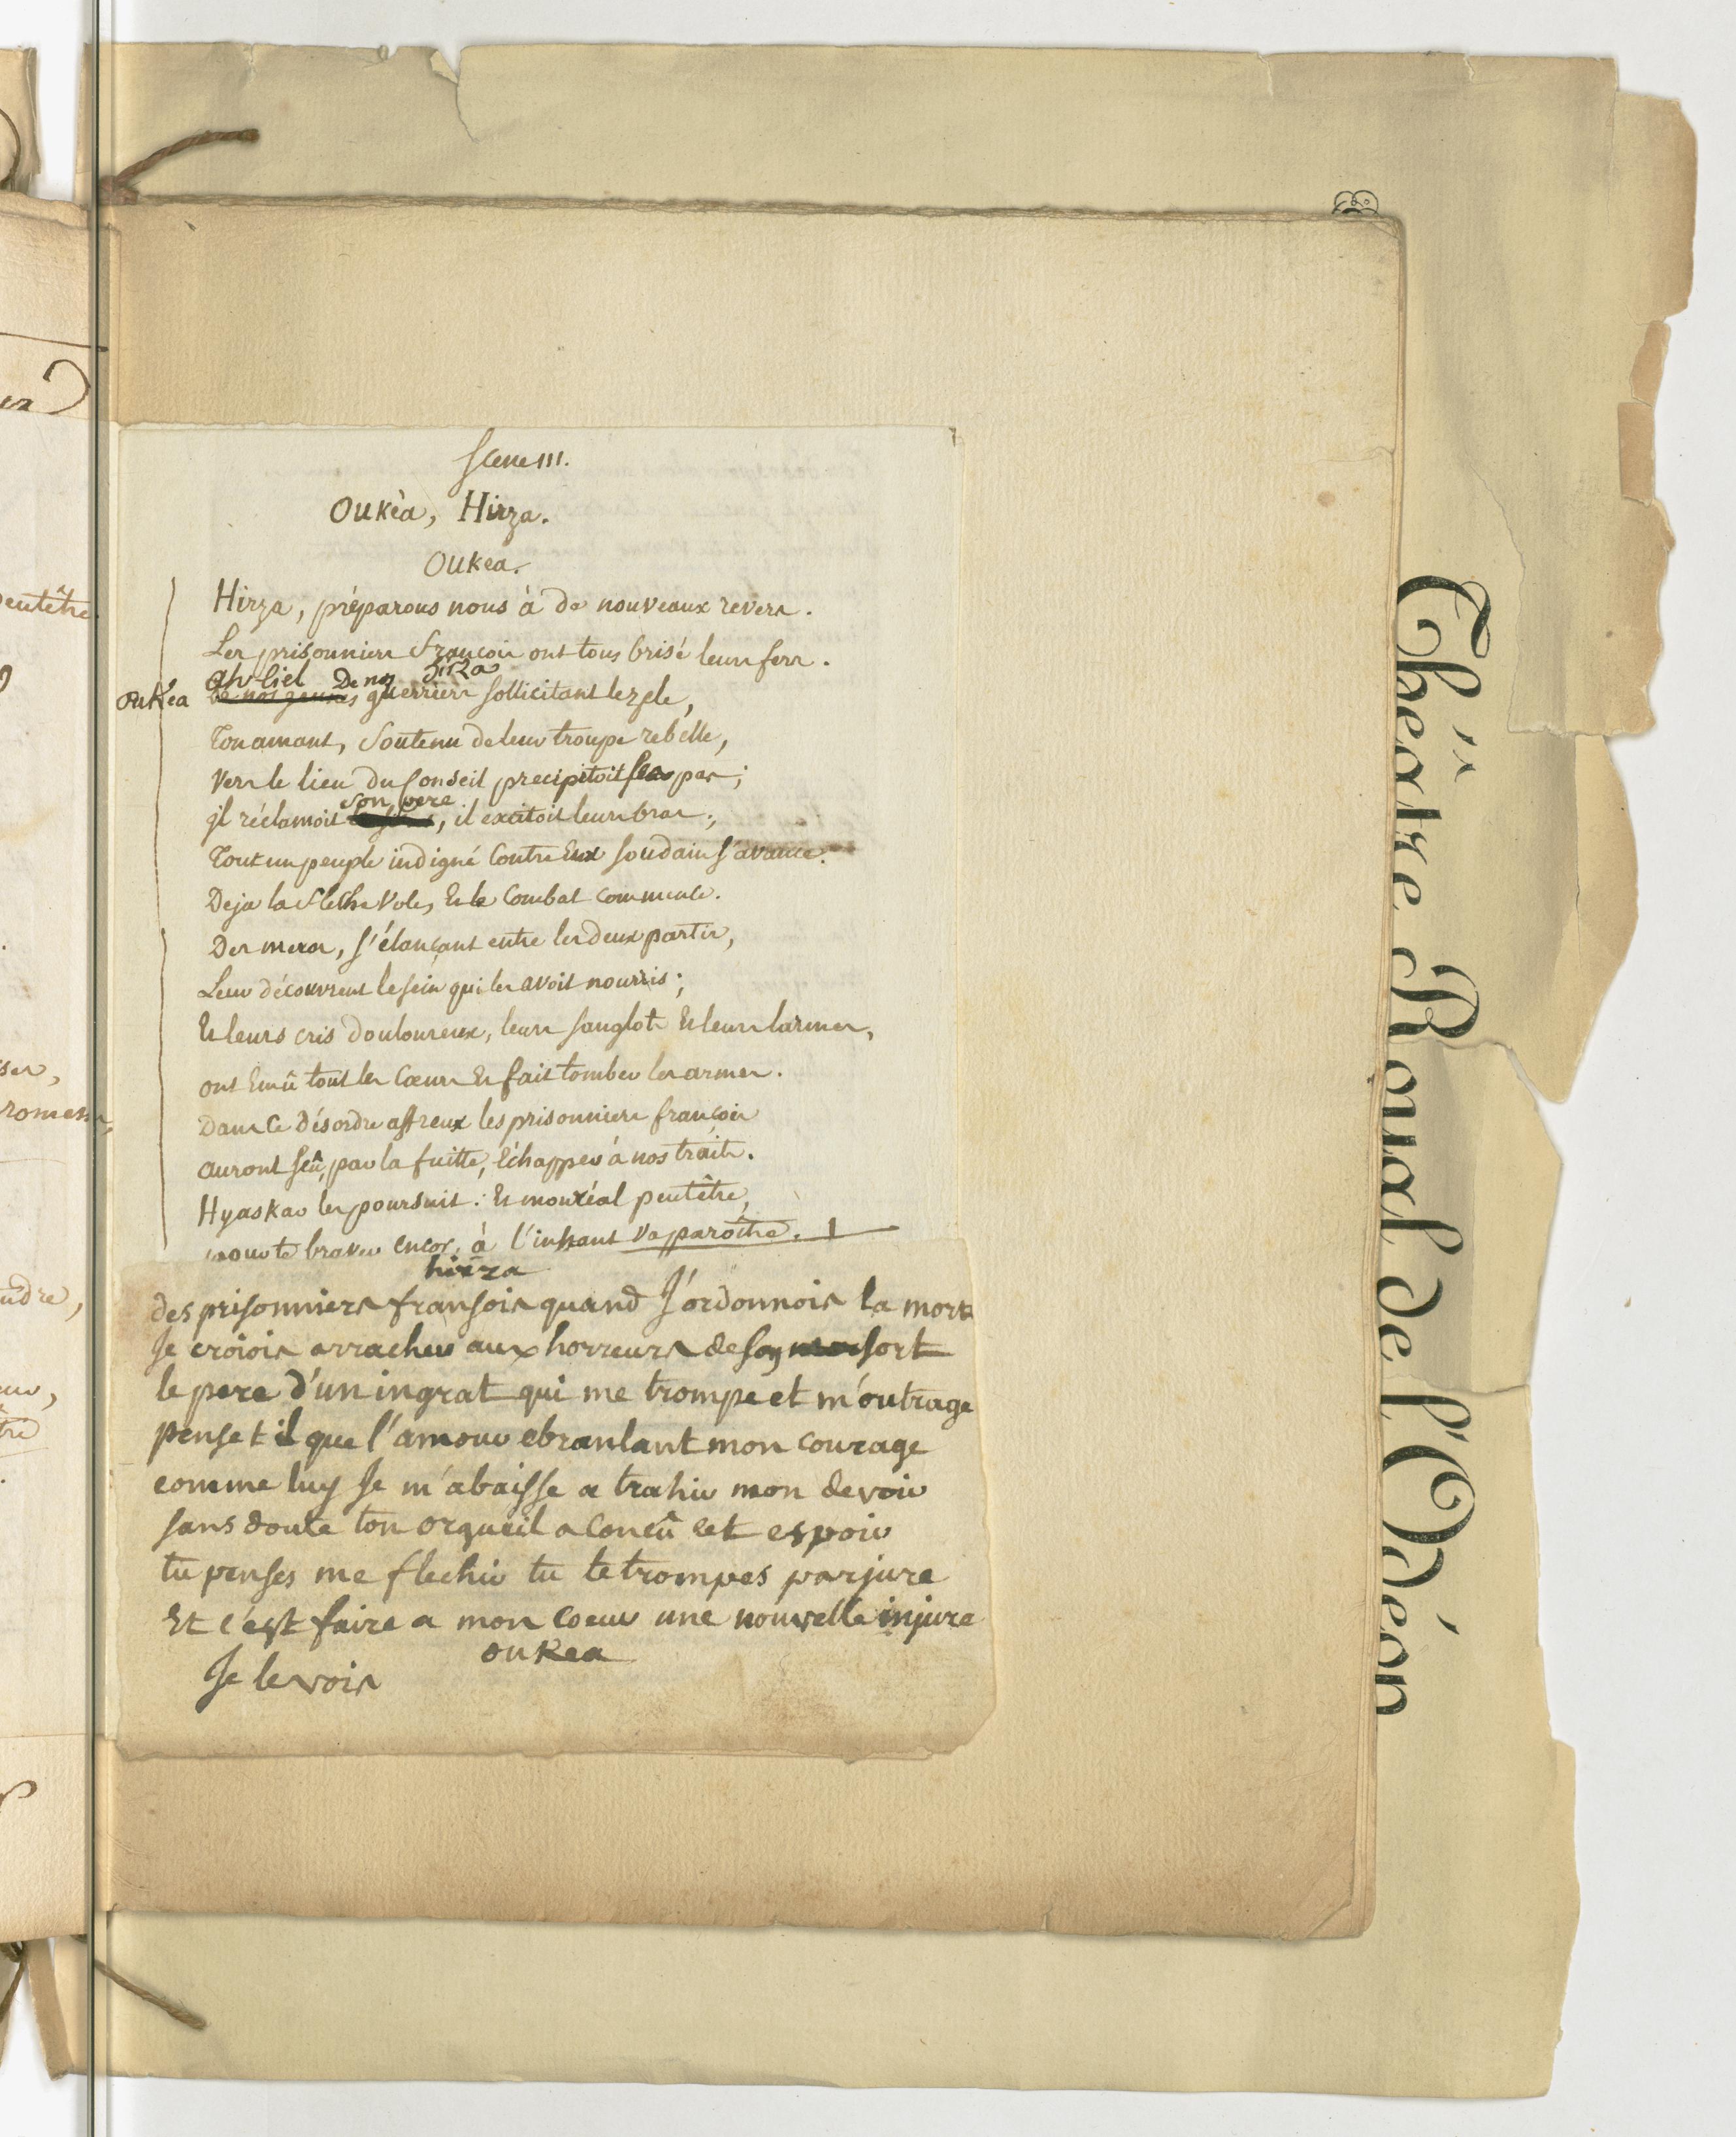 Scene III.
Oukèa, Hirza.
Oukea.
Hirza, préparons nous à de nouveaux revers.
Les prisonniers françois ont tous brisé leurs fers.
hirza
ah Ciel De nos
Oukéa De nos jeunes guerriers sollicitant le zele,
Ton amant, soutenu de leur troupe rebelle,
Vers le lieu du Conseil precipitoit ses pas;
son pere
il réclamoit, il excitoit leurs bras;
Tout un peuple indigné Contre Eux soudain s'avance.
Deja la fleche vole, Et le Combat commence.
Des meres, s'élançant entre les deux partis,
Leur découvrent le sein qui les avoit nourris;
Et leurs cris douloureux, leurs sanglots Et leurs larmes,
ont Emû tout les Cœurs Et fait tomber les armes.
Dans Ce désordre affreux les prisonniers françois
auront seû, par la fuitte, Échapper à nos traits.
Hyaskar les poursuit: Et monréal peutêtre,
pour te braver encor, à l'instant va paroître.
hirza
des prisonniers fransois quand J'ordonnois la mort
Je croiois arracher aux horreurs de son sort
le pere d'un ingrat qui me trompe et m'outrage
penset il que l'amour ebranlant mon courage
comme luy Je m'abaisse a trahir mon devoir
sans doute ton orgueil a conçû cet espoir
tu penses me flechir tu te trompes parjure
Et c'est faire a mon coeur une nouvelle injure
oukea
Je le vois
Théâtre Royal de l'Odéon
peutêtre